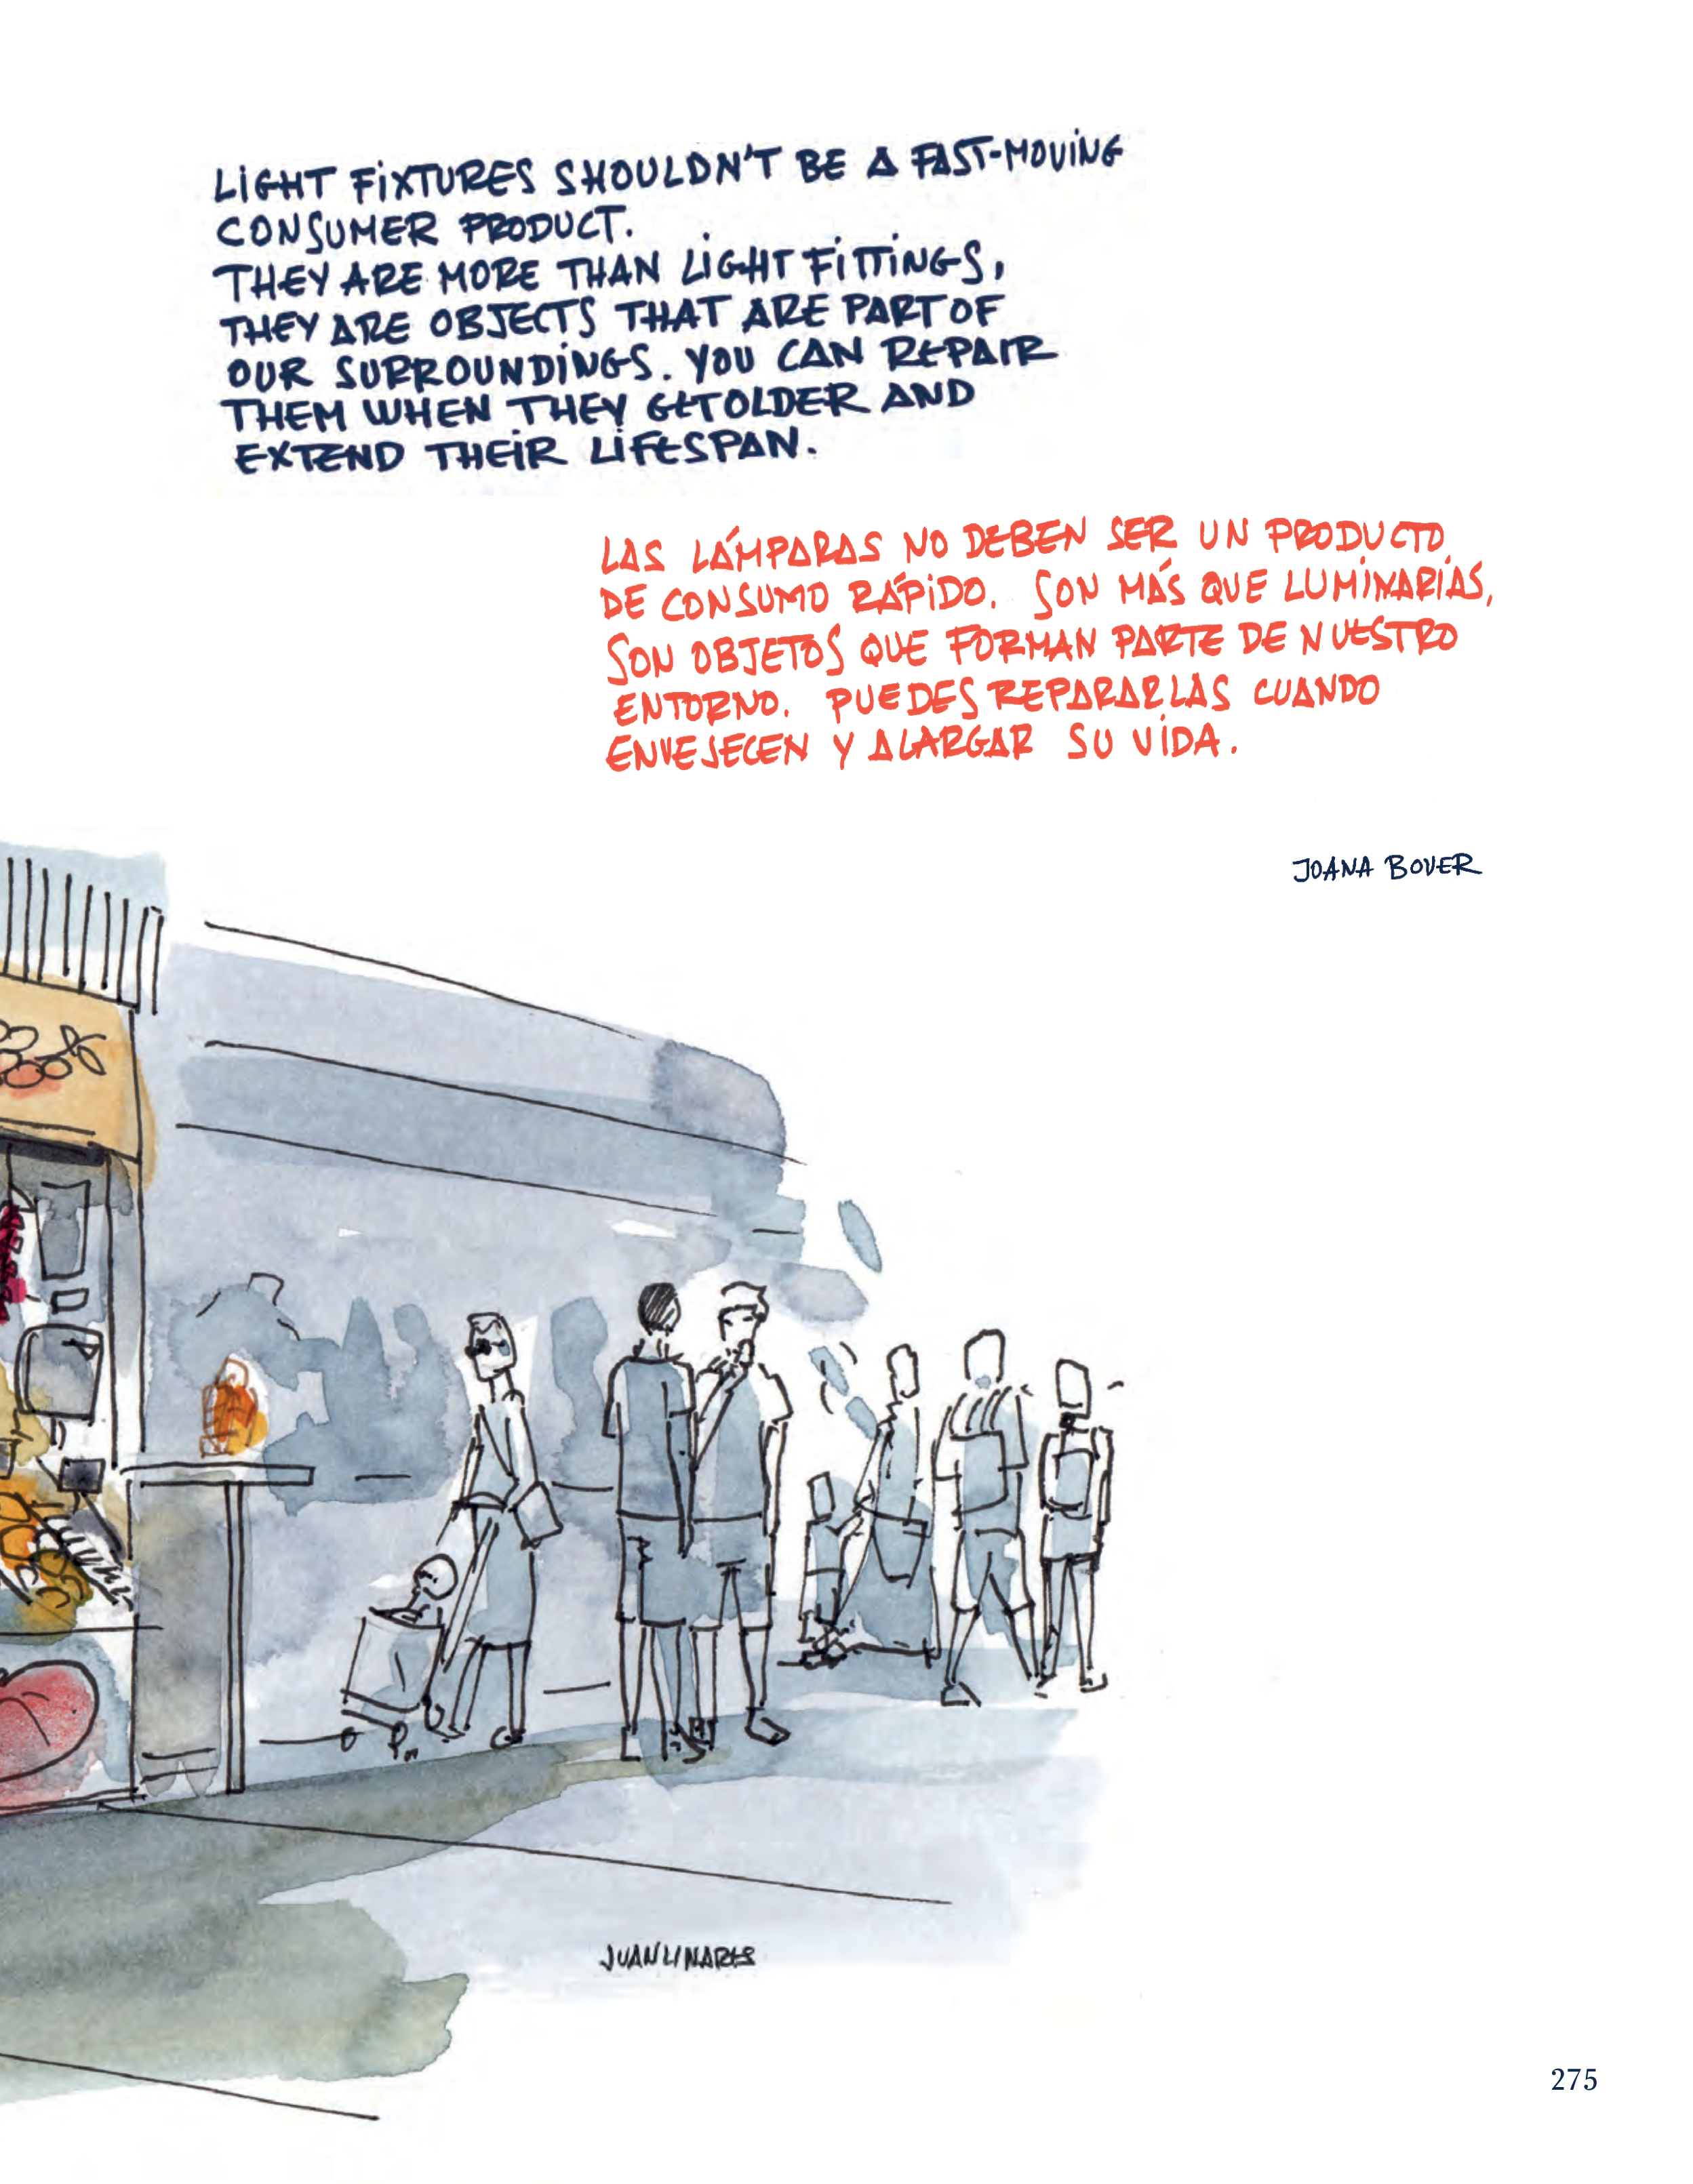 LIGHT FIXTURES SHOULDN'T BE A FAST-MOVING
CONSUMER PRODUCT.
THEY ARE MORE THAN LIGHT FITTINGS,
THEY ARE OBJECTS THAT ARE PART OF
OUR SURROUNDINGS. YOU CAN REPAIR
THEM WHEN THEY GET OLDER AND
EXTEND THEIR LIFESPAN.
LAS LÁMPARAS NO DEBEN SER UN PRODUCTO
DE CONSUMO RÁPIDO. SON MÁS QUE LUMINARIAS,
SON OBJETOS QUE FORMAN PARTE DE NUESTRO
ENTORNO. PUEDES REPARARLAS CUANDO
ENVEJECEN Y ALARGAR SU VIDA.
JOANA BOVER
JUAN LINARES
275